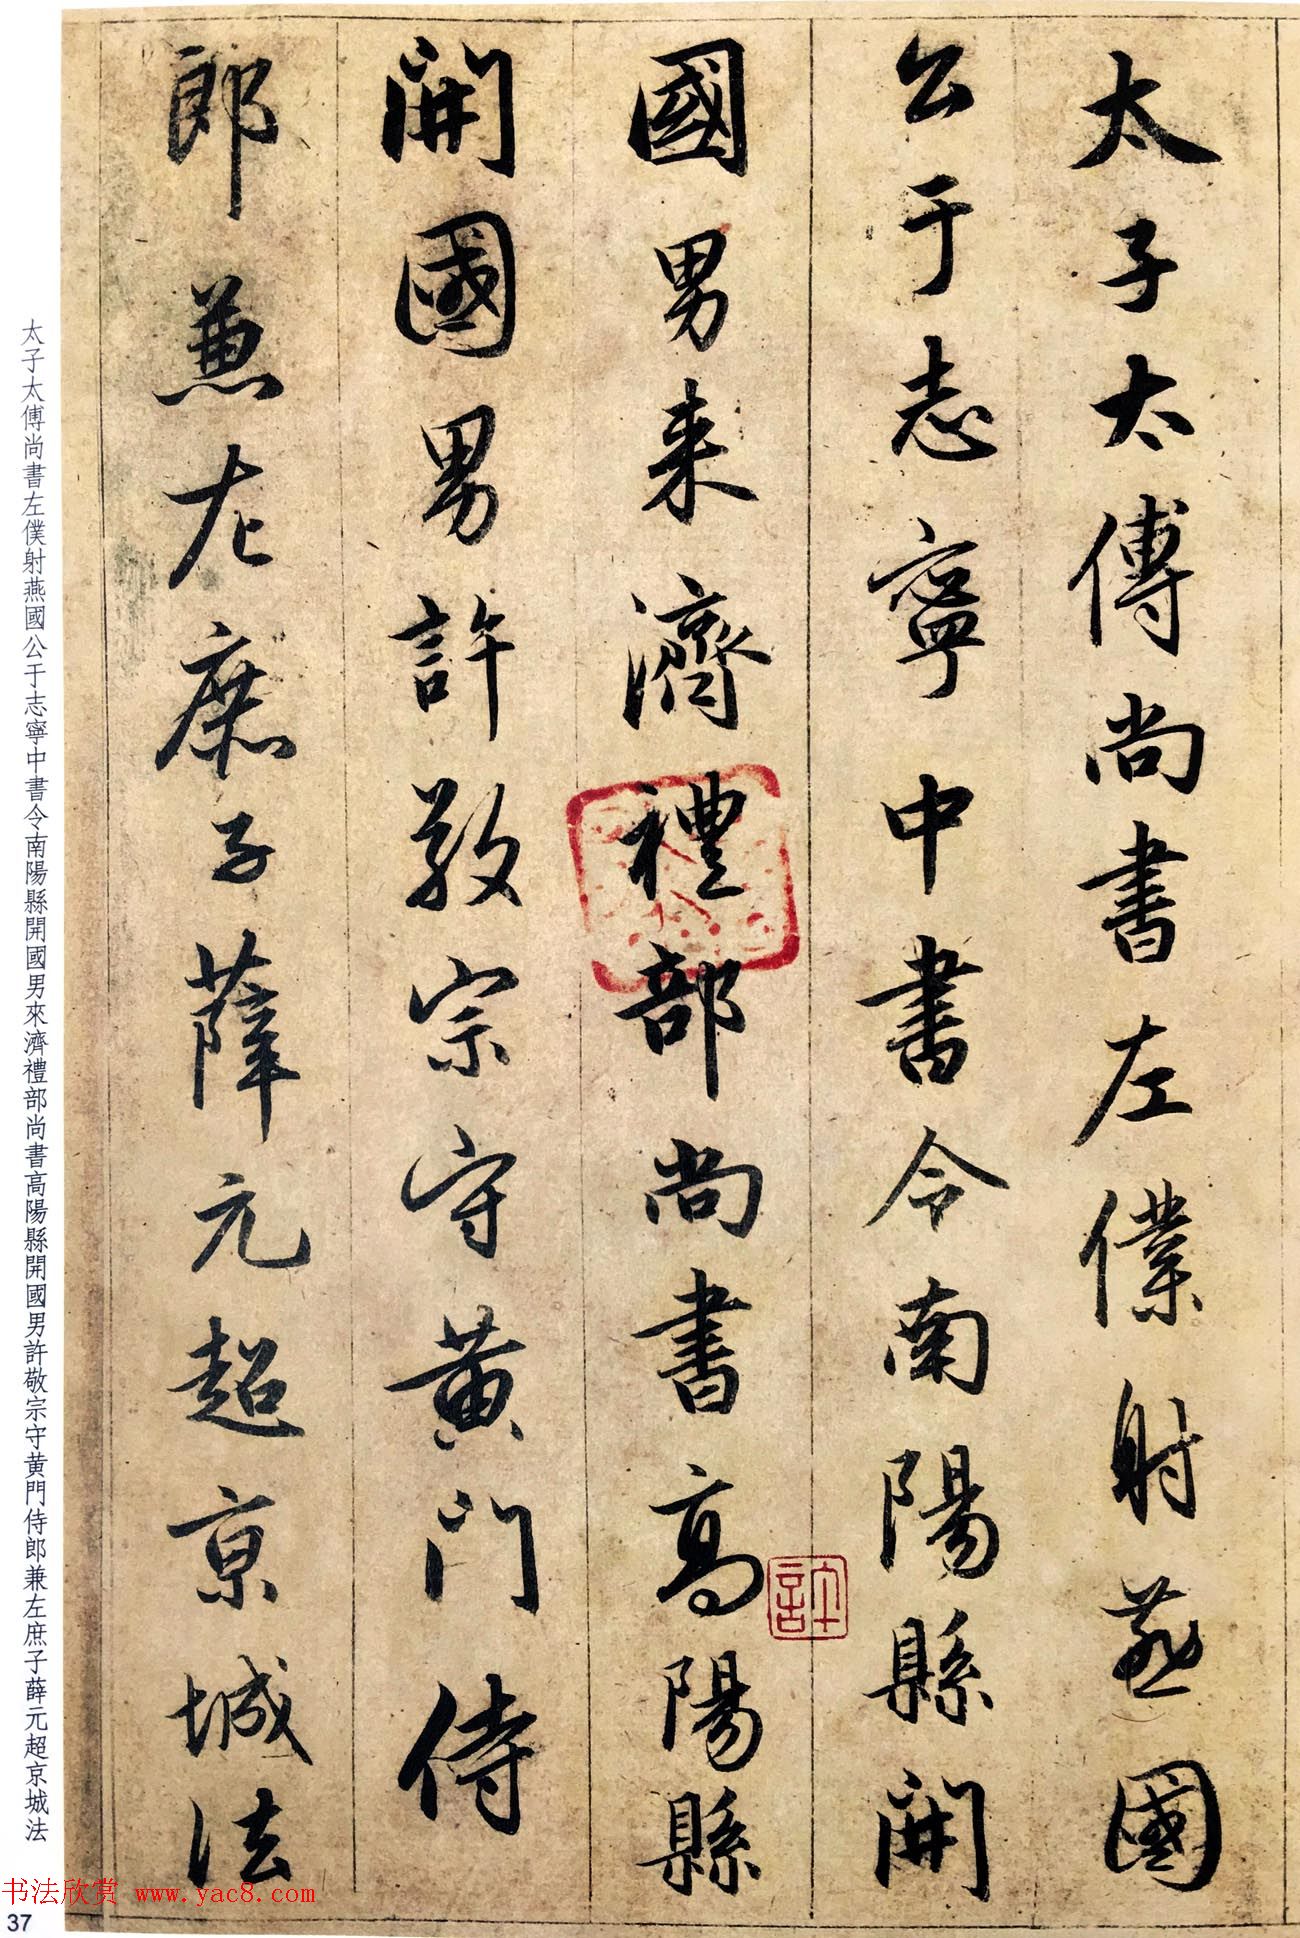 太子太傅尚書左僕射燕國
公于志寧中書令南陽縣開
國男来濟禮部尚書高陽縣
開國男許敬宗守黃門侍
郎兼左庶子薛元超京城法
許
太子太傅尚書左僕射燕國公于志寧中書令南陽縣開國男來濟禮部尚書高陽縣開國男許敬宗守黄門侍郎兼左庶子薛元超京城法
书法欣赏 www.yac8.com
37